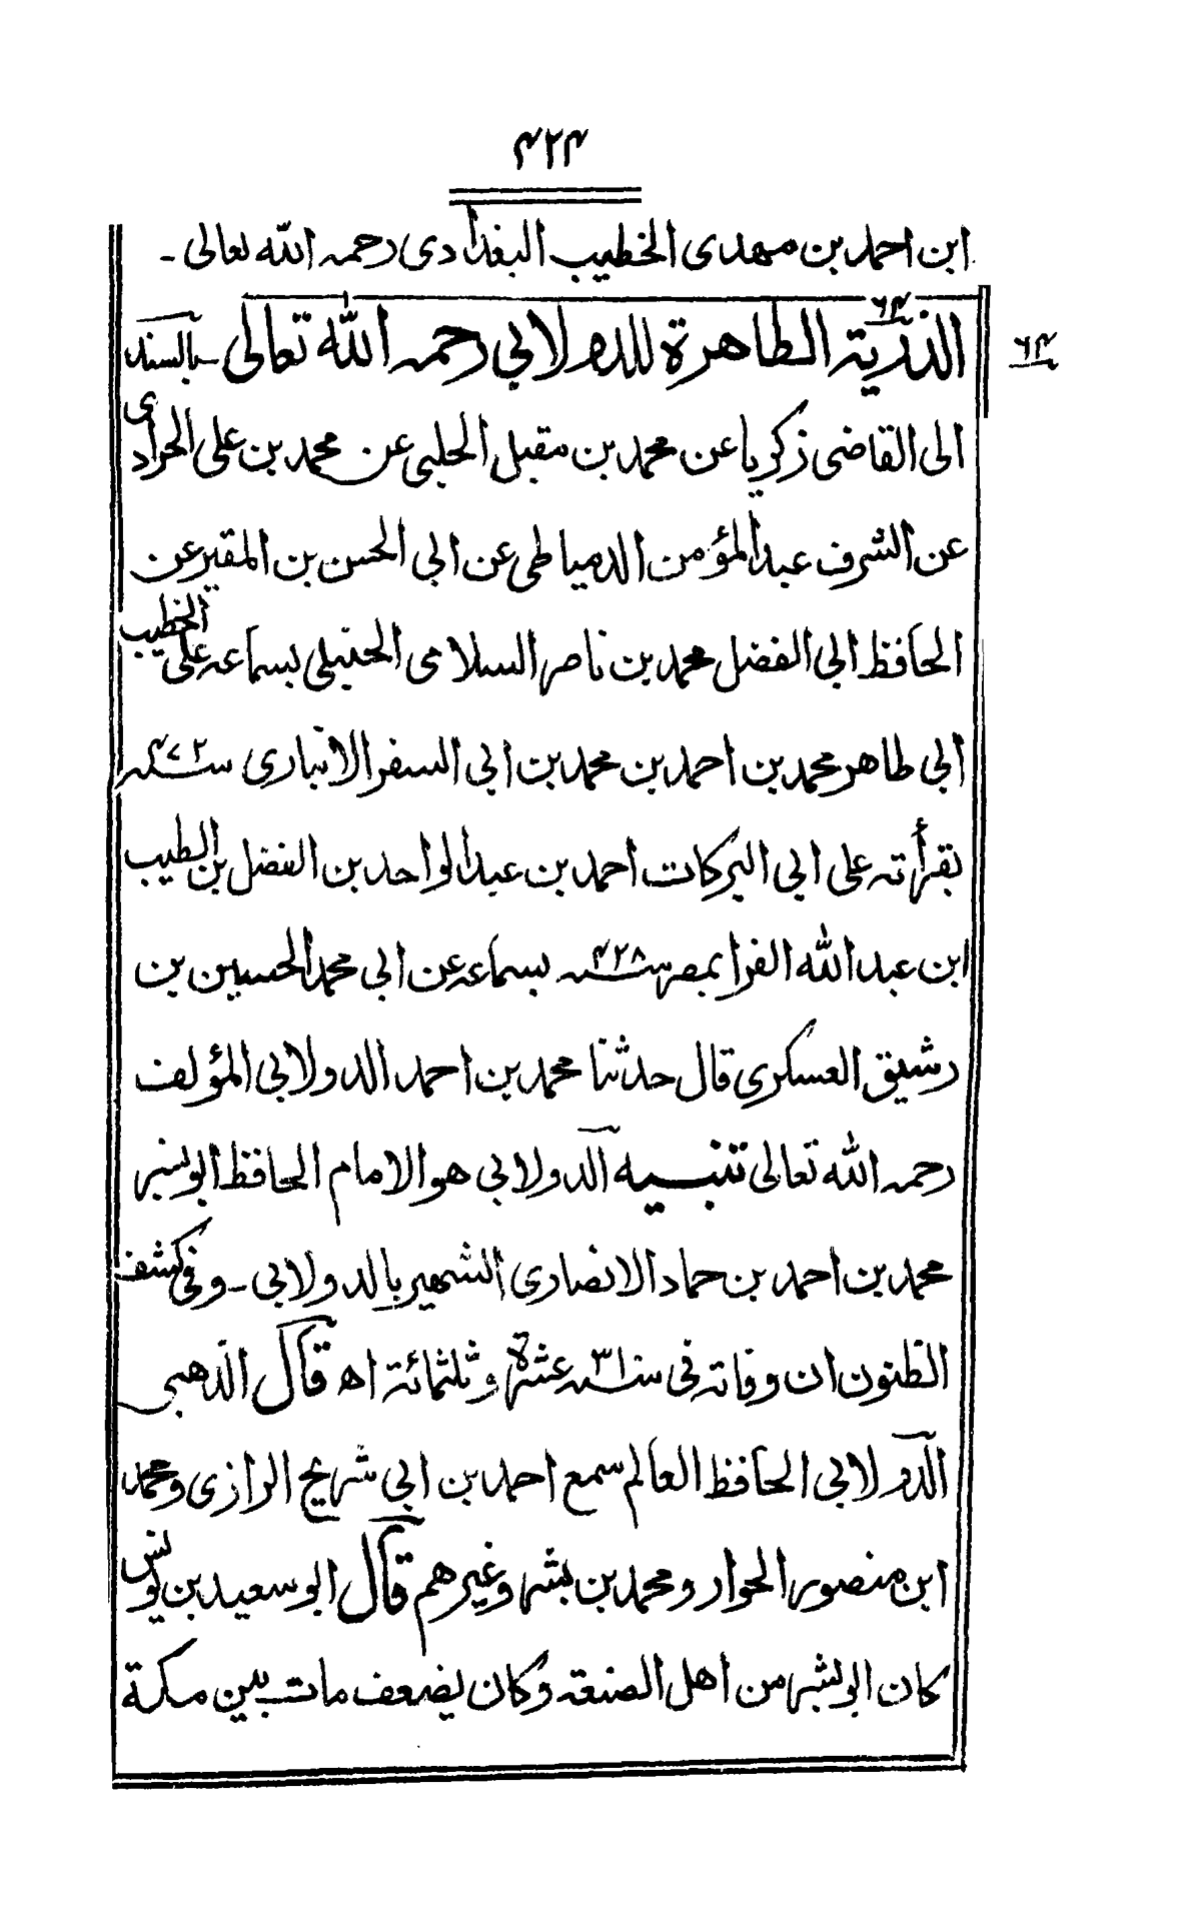 ۴۲۴
ابن احمد بن مهدى الخطيب البغدادى رحمه الله تعالى -
۶۴
الذرّية الطاهرة للدولابي رحمه الله تعالى - بالسند
۶۴
الى القاضى زكريا عن محمد بن مقبل الحلبى عن محمد بن على الحراوى
عن الشرف عبد المؤمن الدمياطى عن ابى الحسن بن المقير عن
الحافظ ابى الفضل محمد بن ناصر السلامى الحنبلى بسماعه على الخطيب
ابى طاهر محمد بن احمد بن محمد بن ابى السفر الانبارى سنة ۴۷۲
بقرأته على ابى البركات احمد بن عبد الواحد بن الفضل بن الطيب
ابن عبد الله الفرا بمصر سنة ۴۲۸ بسماعه عن ابى محمد الحسين بن
رشيق العسكرى قال حدثنا محمد بن احمد الدولابى المؤلف
رحمه الله تعالى تنبيه الدولابى هو الامام الحافظ ابو بشر
محمد بن احمد بن حماد الانصارى الشهير بالدولابى - وفى كشف
الظنون ان وفاته فى سنة ۳۱۰ عشرة وثلثمائة اه قال الذهبى
الدولابى الحافظ العالم سمع احمد بن ابى شريح الرازى ومحمد
ابن منصور الجوار ومحمد بن بشر وغيرهم قال ابو سعيد بن يونس
كان ابو بشر من اهل الصنعة وكان يضعف مات بين مكة